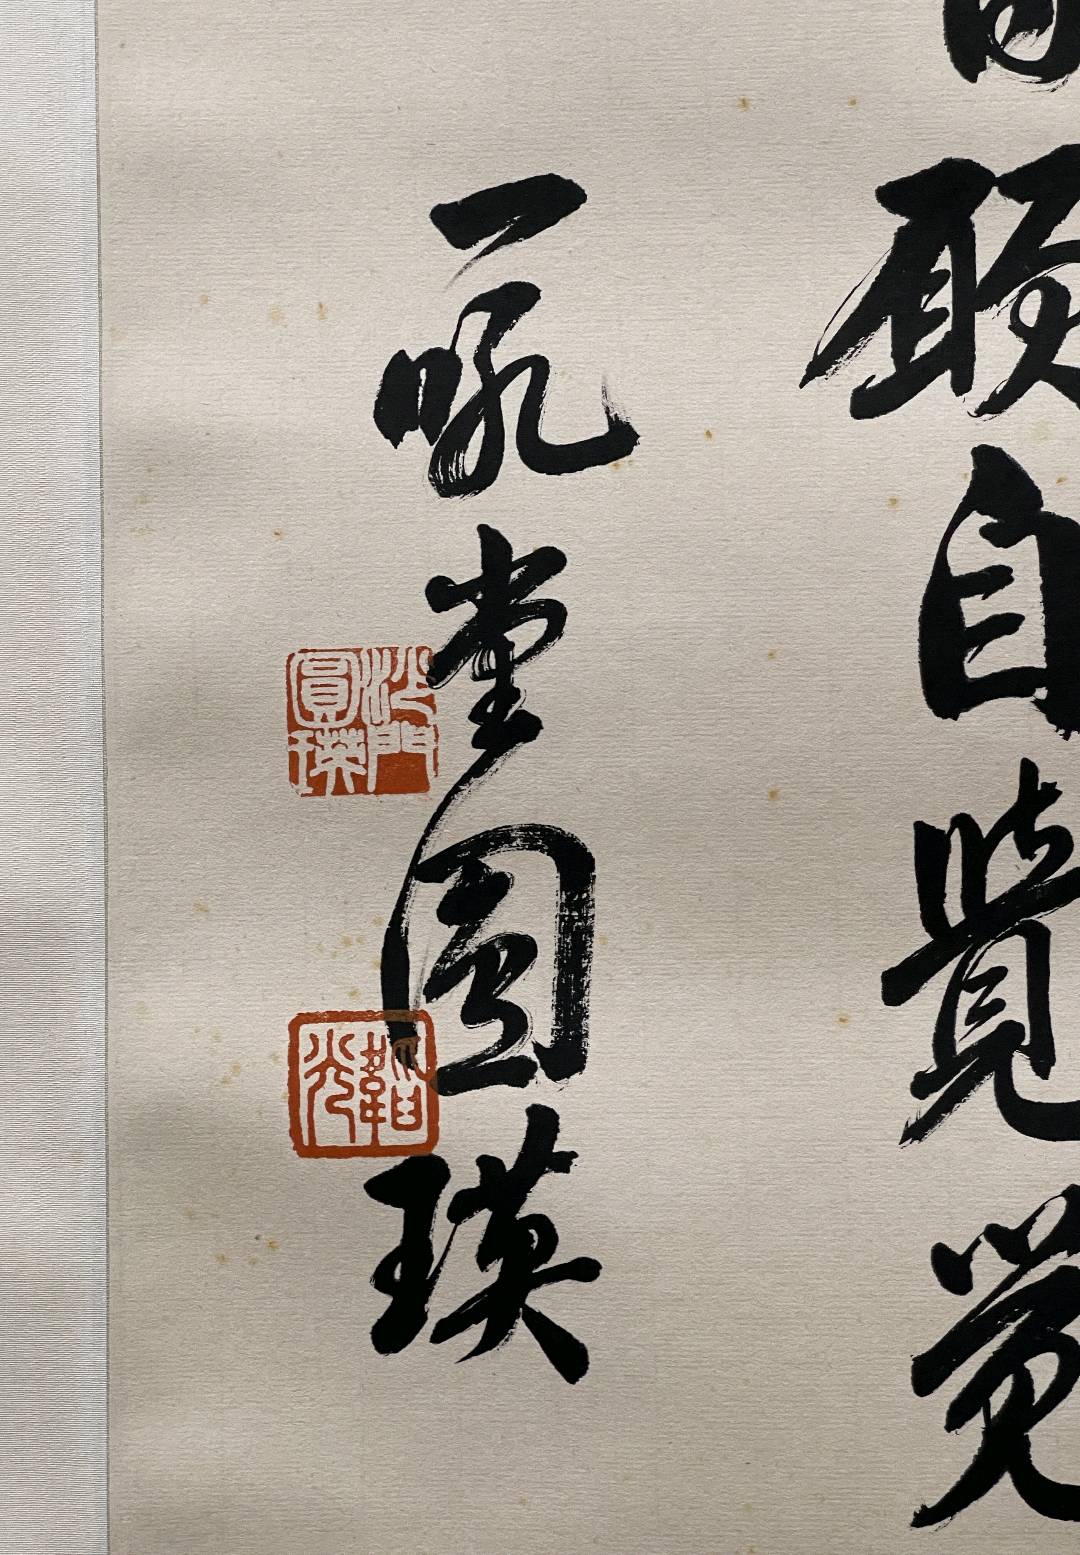 願自覺觉
一吼堂圓瑛
沙門圓瑛
韜光